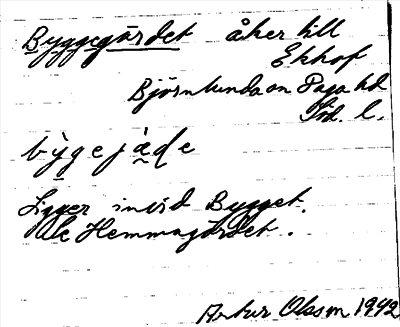 Byggegärdet åker till
Ekhof
Björnlunda sn Daga hd
Söd. l.
bỳgejà̰de
Ligger invid Bygget.
Se Hemmagärdet.
Artur Olsson 1942